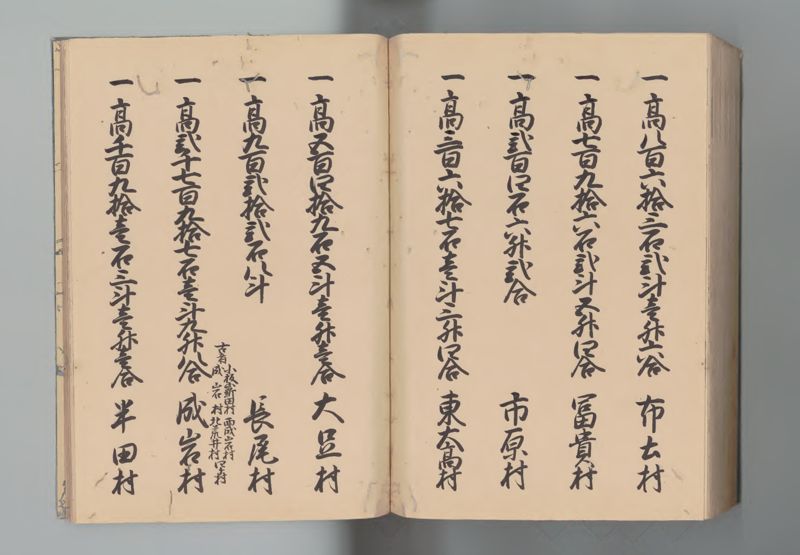 一高八百六拾三石弐斗壱升六合 布土村
一高七百九拾六石弐斗五升四合 冨貴村
一高弐百四石六升弐合 市原村
一高三百六拾七石壱斗三升四合 東大高村
一高五百四拾九石五斗壱升壱合 大足村
一高九百弐拾弐石八斗 長尾村
小板新田村 西成岩村
成岩村 北荒井村 四ケ村
一高弐千七百九拾七石壱斗九升八合 成岩村
一高千百九拾壱石三斗壱升壱合 半田村